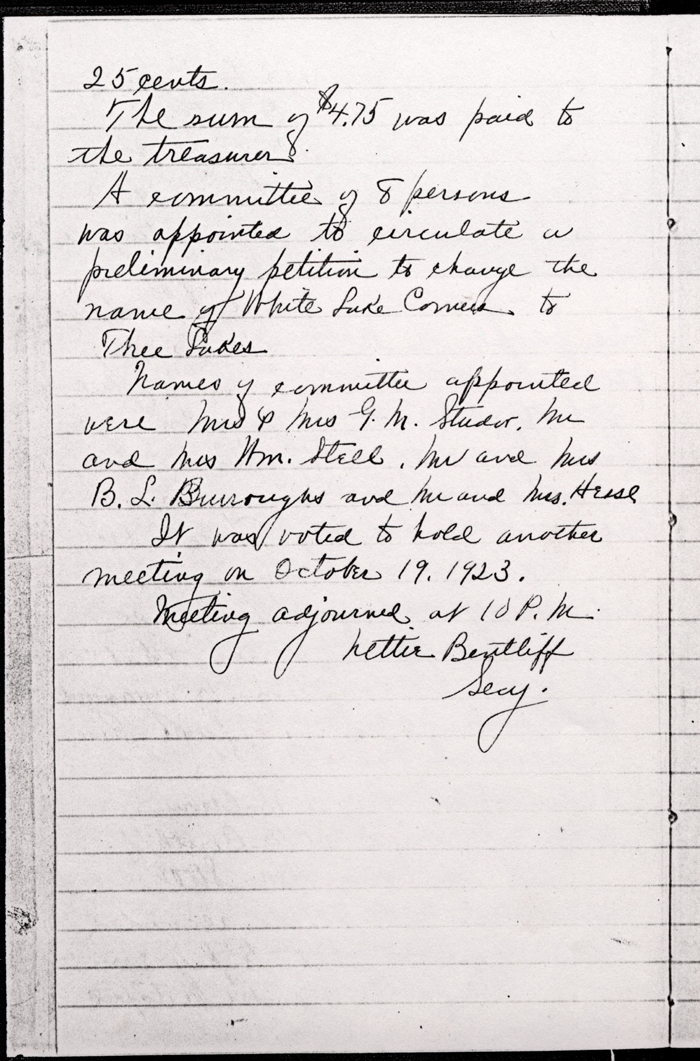 25 cents.
The sum of $4.75 was paid to
the treasurer.
A committee of 8 persons
was appointed to circulate a
preliminary petition to change the
name of White Lake Corners to
Thee Lakes
Names of committee appointed
were Mrs & Mrs G. M. Studor, Mr
and Mrs Wm. Stell, Mr and Mrs
B. L. Burroughs and Mr and Mrs. Hesse
It was voted to hold another
meeting on October 19. 1923.
Meeting adjourned at 10 P.M.
Nettie Bentliff
Secy.